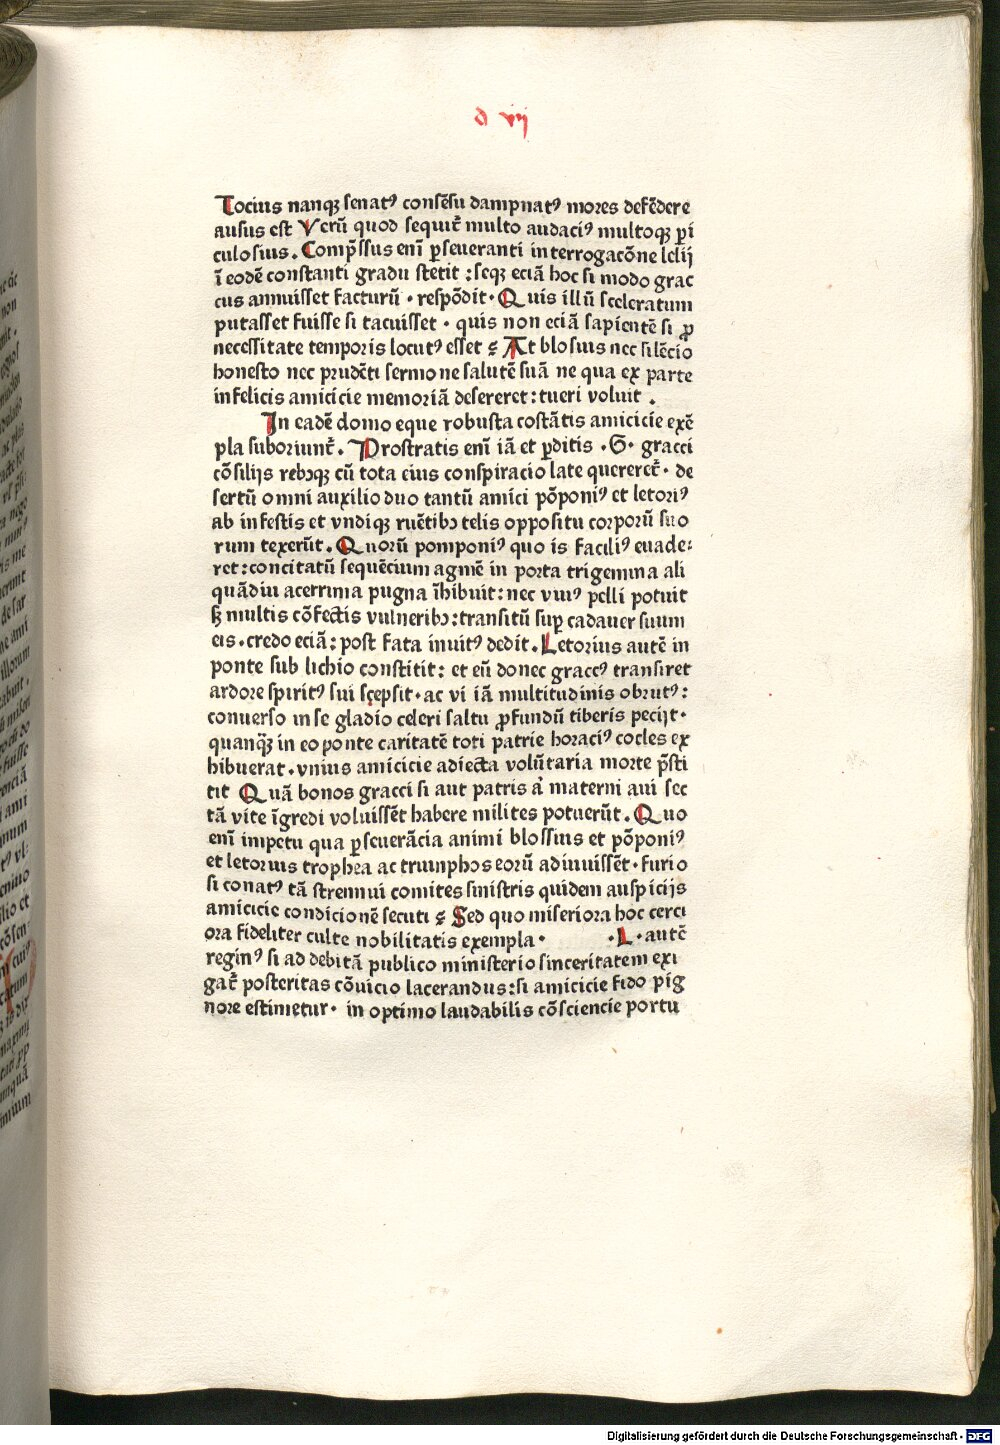 d vij
Tocius nanqꝫ senatꝰ consēsu dampnatꝰ mores defēdere
ausus est Verū quod sequit᷑ multo audaciꝰ multoqꝫ p̲i
culosius. Comp̄ssus enī p̲seueranti interrogacōne lelij
ī eodē constanti gradu stetit : seqꝫ eciā hoc si modo grac
cus annuisset facturū · respōdit · Quis illū sceleratum
putasset fuisse si tacuisset · quis non eciā sapientē si ꝓ
necessitate temporis locutꝰ esset ⁊ At blosius nec silēcio
honesto nec prudēti sermone salutē suā ne qua ex parte
infelicis amicicie memoriā desereret : tueri voluit .
In eadē domo eque robusta costātis amicicie exē
pla suboriunt᷑. Prostratis enī iā et p̲ditis · G · gracci
cōsilijs rebꝫqꝫ cū tota eius conspiracio late quereret᷑ · de
sertū omni auxilio duo tantū amici pōponiꝰ et letoriꝰ
ab infestis et vndiqꝫ ruētibꝫ telis oppositu corporū suo
rum texerūt. Quorū pomponiꝰ quo is faciliꝰ euade:
ret : concitatū sequēcium agmē in porta trigemina ali
quādiu acerrima pugna īhibuit : nec viuꝰ pelli potuit
sꝫ multis cōfectis vulneribꝫ : transitū sup̲ cadauer suum
eis · credo eciā : post fata inuitꝰ dedit. Letorius autē in
ponte sublichio constitit : et eū donec graccꝰ transiret
ardore spiritꝰ sui scepsit · ac vi iā multitudinis obrutꝰ :
conuerso in se gladio celeri saltu ꝓfundū tiberis pecijt ·
quanqꝫ̄ in eo ponte caritatē toti patrie horaciꝰ cocles ex
hibuerat · vnius amicicie adiecta volūtaria morte p̄sti
tit Quā bonos gracci si aut patris aͥ materni aui sec
tā vite īgredi voluissēt habere milites potuerūt. Quo
enī impetu qua p̲seuerācia animi blossius et pōponiꝰ
et letorius trophea ac triumphos eorū adiuuissēt · furio
si conatꝰ tā strennui comites sinistris quidem auspicijs
amicicie condicionē secuti ⁊ Sed quo miseriora hoc cerci
ora fideliter culte nobilitatis exempla · · L · autē
reginꝰ si ad debitā publico ministerio sinceritatem exi
gat᷑ posteritas cōuicio lacerandus : si amicicie fido pig
nore estimetur · in optimo laudabilis cōsciencie portu
Digitalisierung gefördert durch die Deutsche Forschungsgemeinschaft · DFG